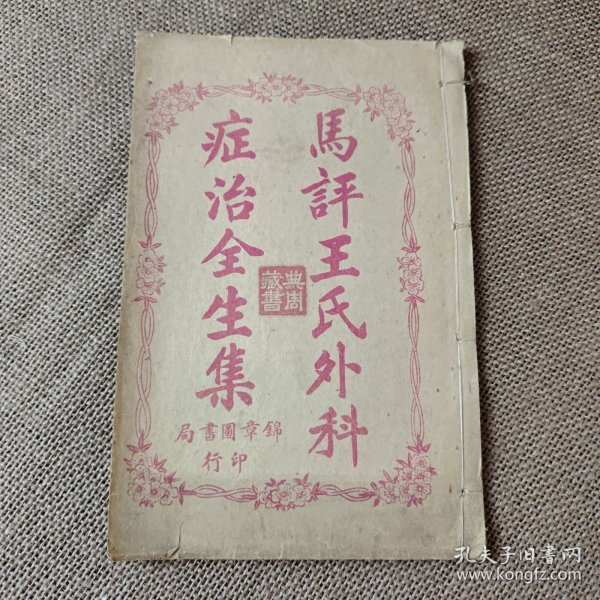 馬評王氏外科
症治全生集
典周藏書
錦章圖書局
印行
孔夫子旧书网
www.kongfz.com